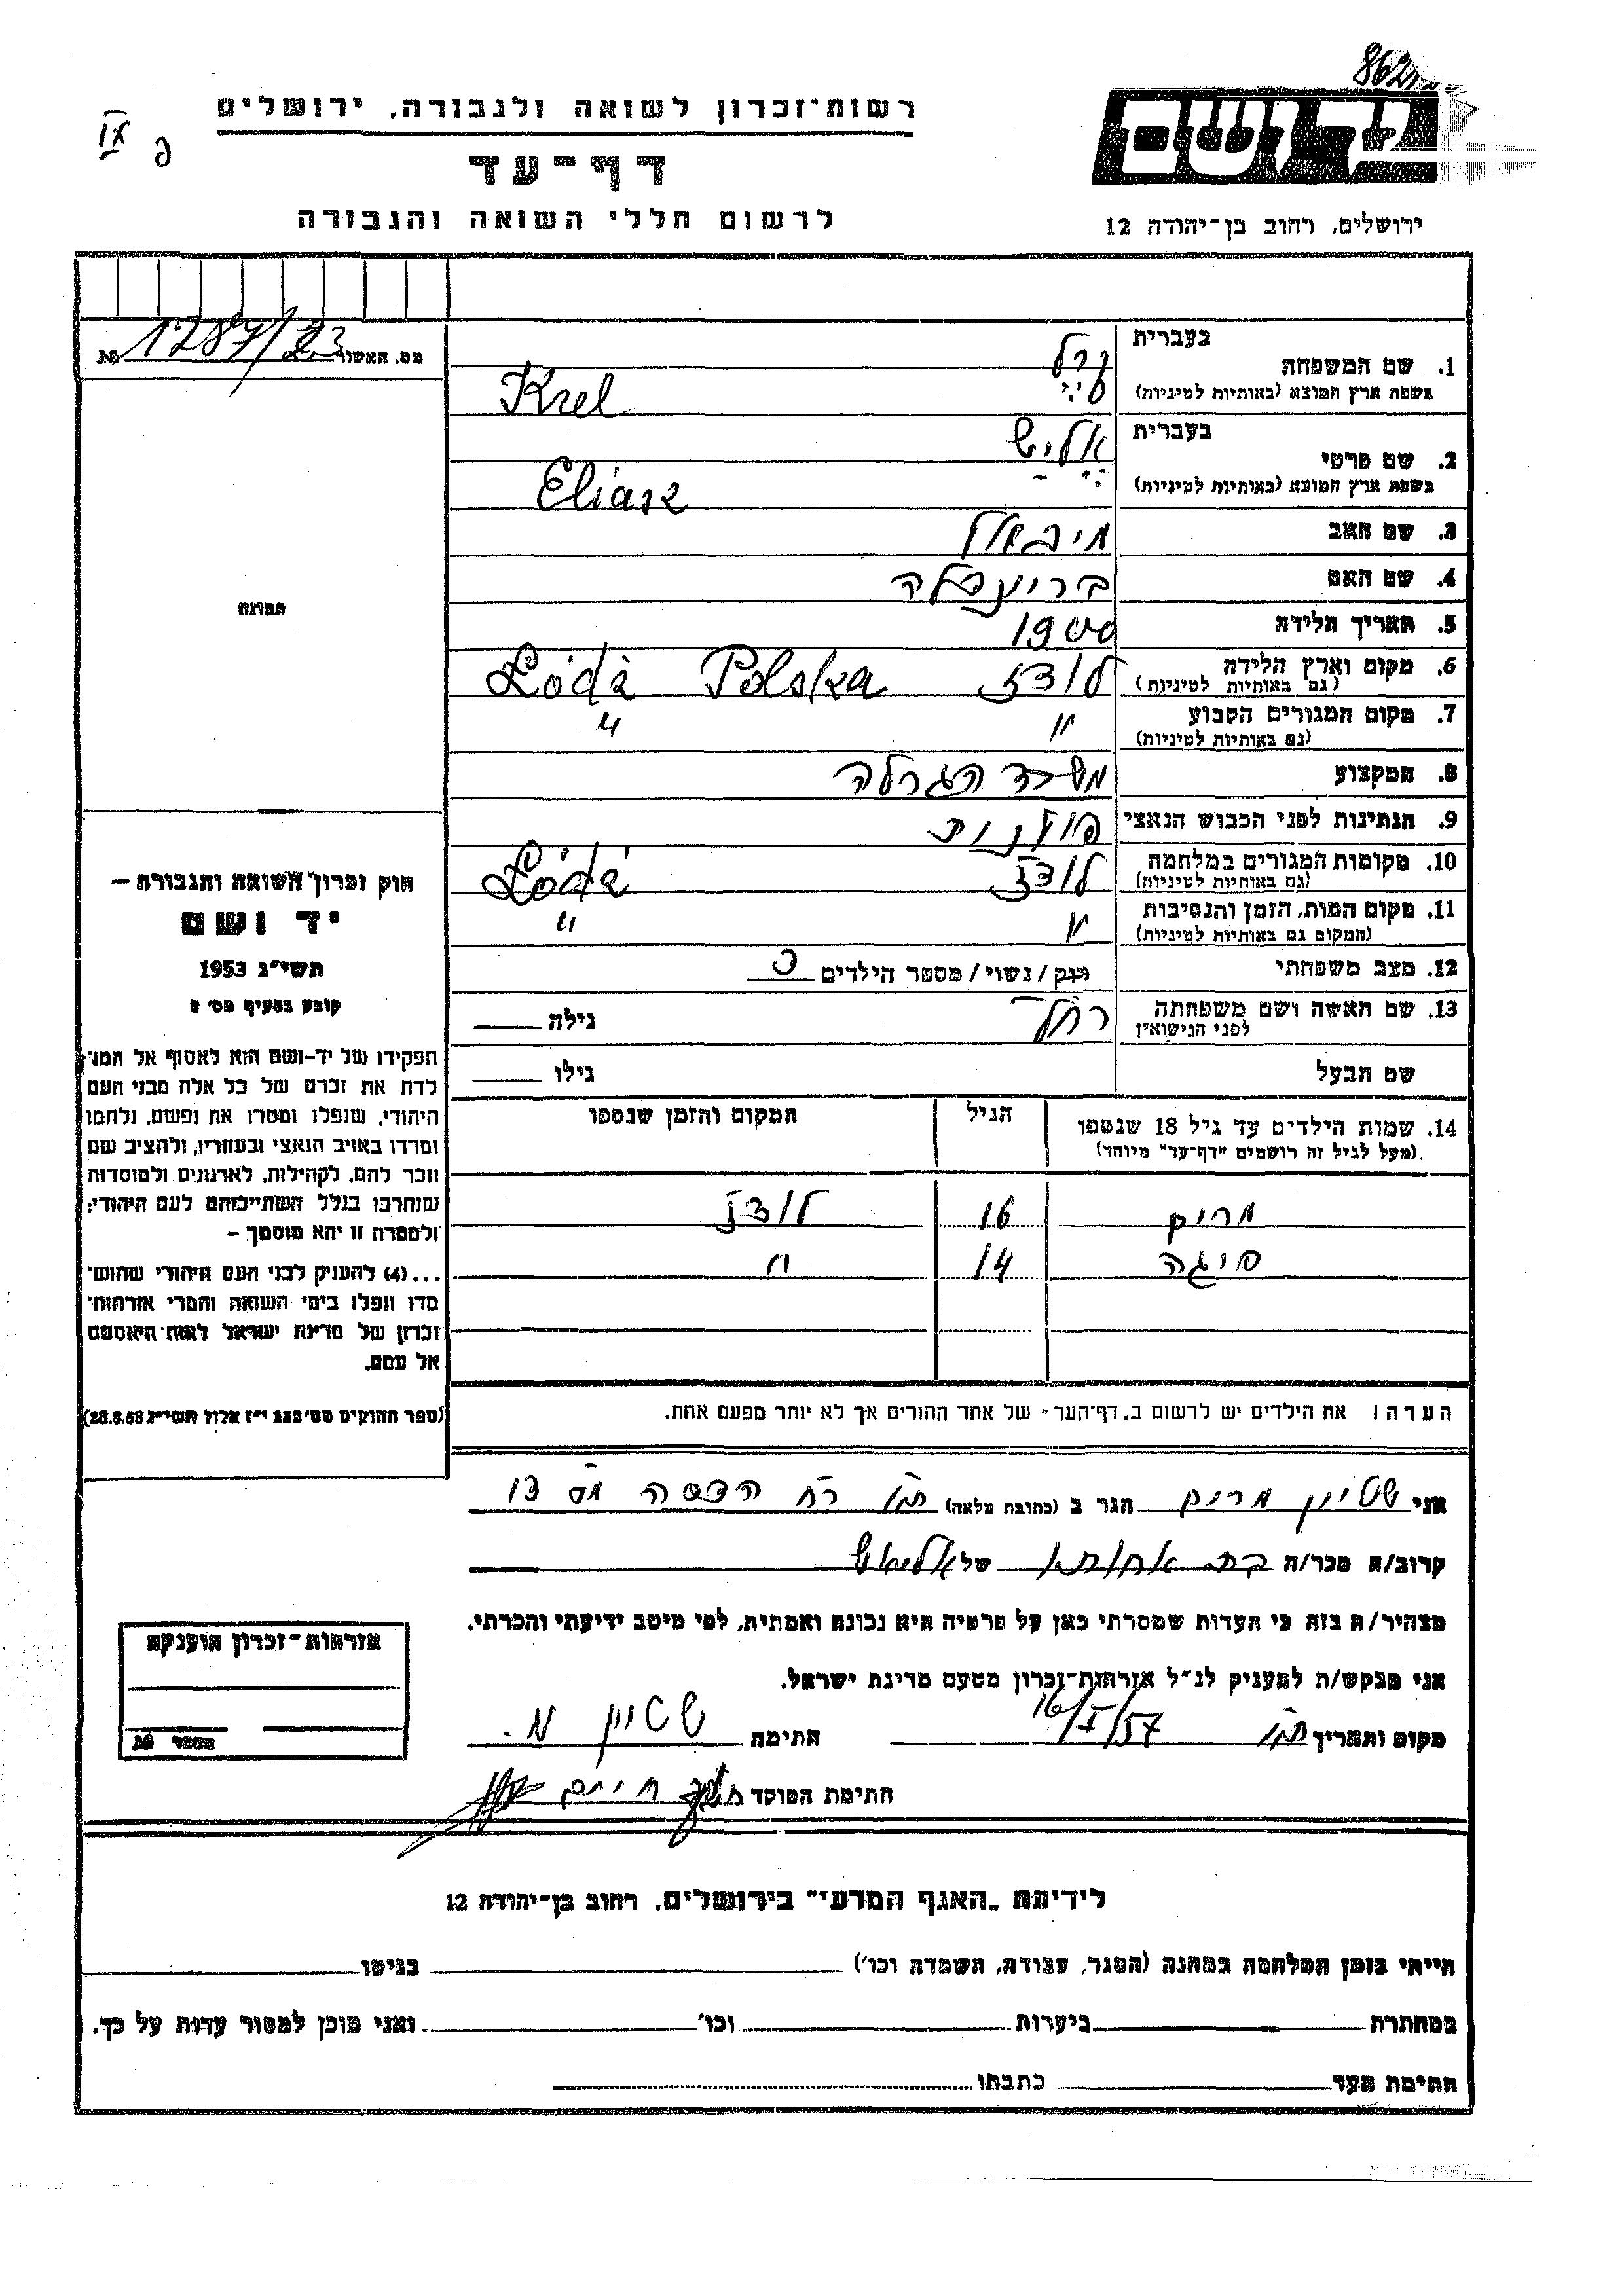 862
רשות־זכרון לשואה ולגבורה, ירושלים
דף־עד
לרשום חללי השואה והגבורה
יד ושם
ירושלים, רחוב בן־יהודה 12
IX
מס. האשור 1287/23 №
בעברית
1. שם המשפחה קרל
בשפת ארץ המוצא (באותיות לטיניות) Krel
בעברית
2. שם פרטי אליש
בשפת ארץ המוצא (באותיות לטיניות) Eliasz
3. שם האב מיכאל
4. שם האם
5. תאריך הלידה 1900
6. מקום וארץ הלידה לודז Łódź Polska
(גם באותיות לטיניות)
7. מקום המגורים הקבוע " "
(גם באותיות לטיניות)
8. המקצוע משרד הגרלה
9. הנתינות לפני הכבוש הנאצי פולנית
10. מקומות המגורים במלחמה לודז Łódź
(גם באותיות לטיניות)
11. מקום המות, הזמן והנסיבות " "
(המקום גם באותיות לטיניות)
12. מצב משפחתי רוק / נשוי / מספר הילדים
13. שם האשה ושם משפחתה רחל גילה
לפני הנישואין
שם הבעל גילו
14. שמות הילדים עד גיל 18 שנספו הגיל המקום והזמן שנספו
(מעל לגיל זה רושמים "דף־עד" מיוחד)
מרים 16 לודז
פיגה 14 "
הערה! את הילדים יש לרשום ב„דף־העד" של אחד ההורים אך לא יותר מפעם אחת.
תמונה
חוק זכרון השואה והגבורה –
יד ושם
תשי"ג 1953
קובע בסעיף מס' 2
תפקידו של יד־ושם הוא לאסוף אל המו־
לדת את זכרם של כל אלה מבני העם
היהודי, שנפלו ומסרו את נפשם, נלחמו
ומרדו באויב הנאצי ובעוזריו, ולהציב שם
וזכר להם, לקהילות, לארגונים ולמוסדות
שנחרבו בגלל השתייכותם לעם היהודי;
ולמטרה זו יהא מוסמך –
...(4) להעניק לבני העם היהודי שהוש־
מדו ונפלו בימי השואה והמרי אזרחות־
זכרון של מדינת ישראל לאות היאספם
אל עמם.
(ספר החוקים מס' 132 י"ז אלול תשי"ג 28.8.53)
אני שטיין מרים הגר ב (כתובת מלאה) ת"א רח הדסה מס 13
קרוב/ה מכר/ה בת אחותו של אליאש
מצהיר/ה בזה כי העדות שמסרתי כאן על פרטיה היא נכונה ואמתית, לפי מיטב ידיעתי והכרתי.
אני מבקש/ת להעניק לנ"ל אזרחות־זכרון מטעם מדינת ישראל.
מקום ותאריך ת"א 16/I/57 חתימה שטיין מ.
חתימת הפוקד חיים
אזרחות־זכרון הוענקה
מספר №
לידיעת „האגף המדעי" בירושלים, רחוב בן־יהודה 12
הייתי בזמן המלחמה במחנה (הסגר, עבודה, השמדה וכו') בגיטו
במחתרת ביערות וכו' ואני מוכן למסור עדות על כך.
חתימת העד כתבתו